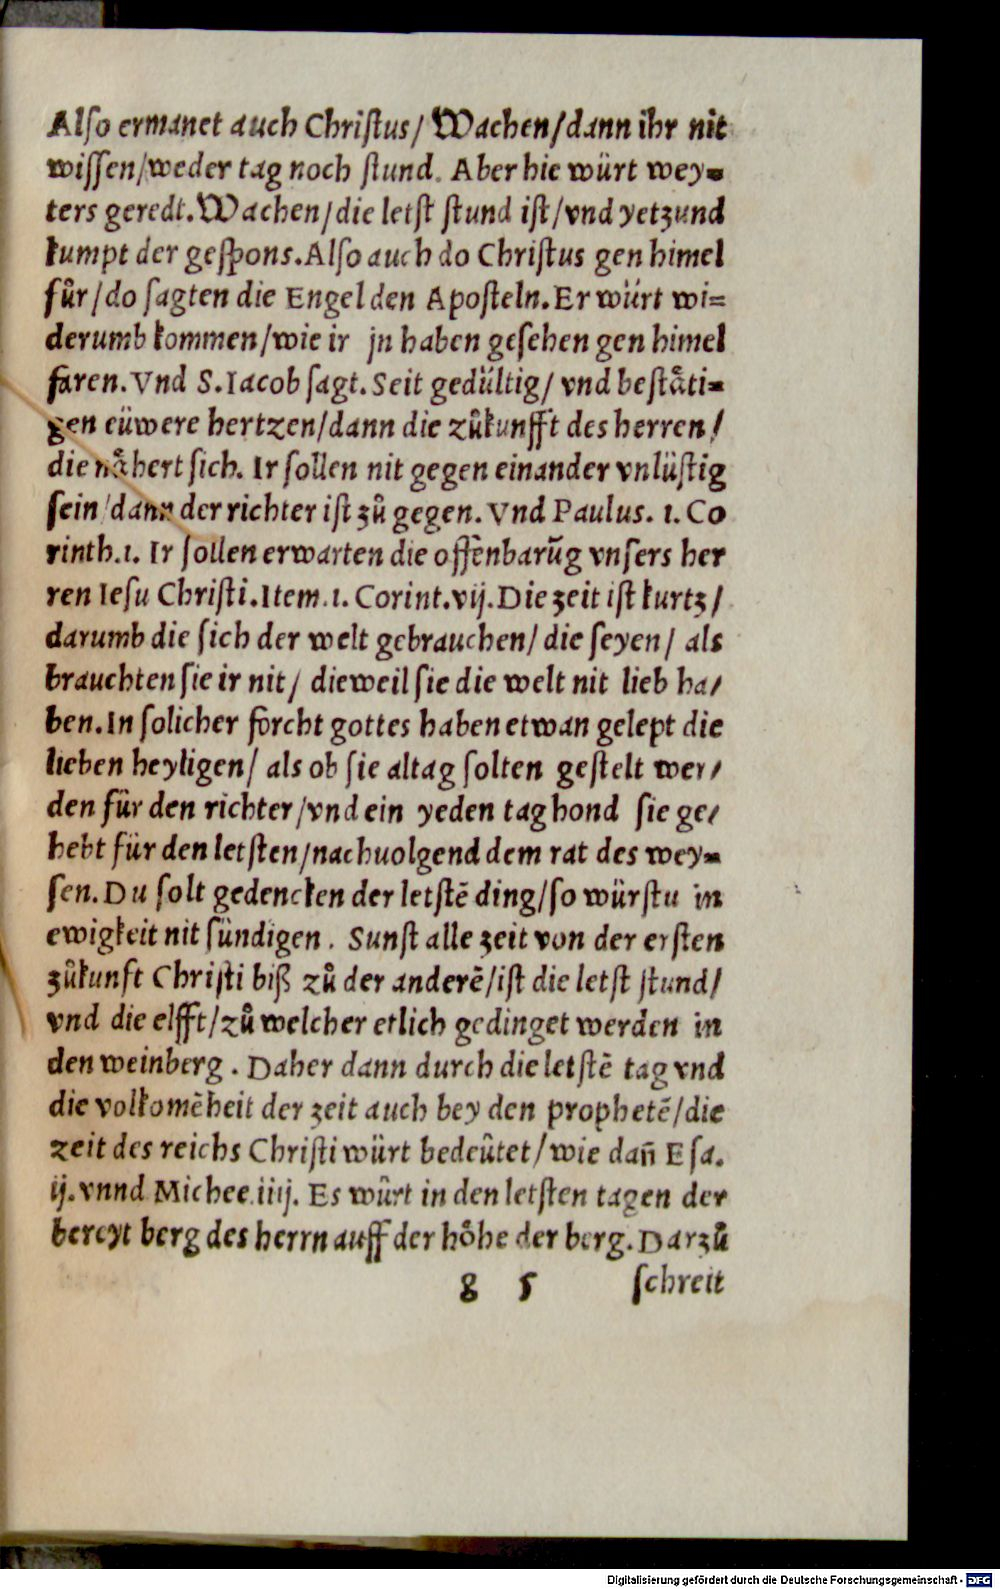 Alſo ermanet auch Chriſtus/ Wachen/dann ihr nit
wiſſen/weder tag noch ſtund. Aber hie würt wey=
ters geredt. Wachen/die letſt ſtund iſt/vnd yetzund
kumpt der geſpons. Alſo auch do Chriſtus gen himel
fůr/do ſagten die Engel den Apoſteln. Er würt wi=
derumb kommen/wie ir jn haben geſehen gen himel
faren. Vnd S. Iacob ſagt. Seit gedültig/ vnd beſtåti=
gen eüwere hertzen/dann die zůkunfft des herren/
die nåhert ſich. Ir ſollen nit gegen einander vnlüſtig
ſein/dann der richter iſt zů gegen. Vnd Paulus. 1. Co
rinth.1. Ir ſollen erwarten die offenbarūg vnſers her
ren Ieſu Chriſti. Item.1. Corint.vij. Die zeit iſt kurtz/
darumb die ſich der welt gebrauchen/ die ſeyen/ als
brauchten ſie ir nit/ dieweil ſie die welt nit lieb ha/
ben. In ſolicher forcht gottes haben etwan gelept die
lieben heyligen/ als ob ſie altag ſolten geſtelt wer/
den für den richter/vnd ein yeden tag hond ſie ge/
hebt für den letſten/nachuolgend dem rat des wey=
ſen. Du ſolt gedencken der letſtē ding/ſo würſtu in
ewigkeit nit ſündigen. Sunſt alle zeit von der erſten
zůkunft Chriſti biß zů der anderē/iſt die letſt ſtund/
vnd die elfft/zů welcher etlich gedinget werden in
den weinberg. Daher dann durch die letſtē tag vnd
die volkomēheit der zeit auch bey den prophetē/die
zeit des reichs Chriſti würt bedeütet/wie dañ Eſa.
ij. vnnd Michee.iiij. Es würt in den letſten tagen der
bereyt berg des herrn auff der höhe der berg. Darzů
g 5 ſchreit
Digitalisierung gefördert durch die Deutsche Forschungsgemeinschaft - DFG